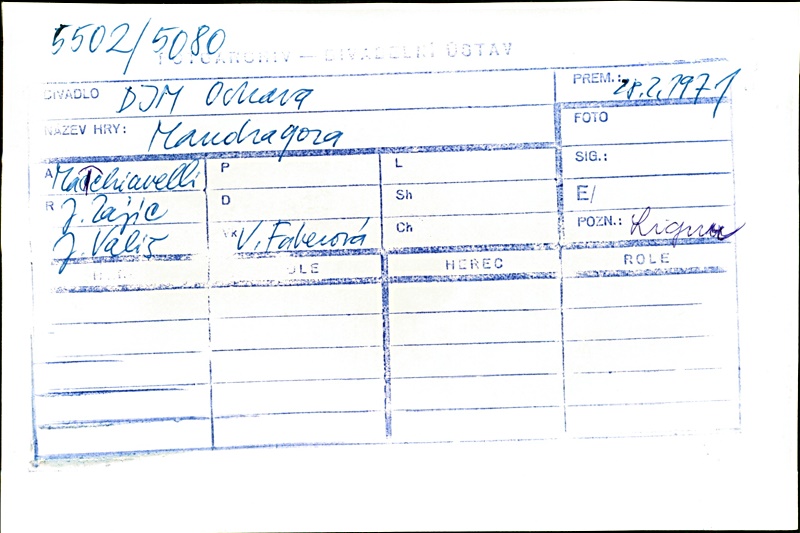 5502/5080
FOTOARCHIV — DIVADELNÍ ÚSTAV
DIVADLO DJM Ostrava
PREM.: 28.2.1971
NÁZEV HRY: Mandragora
FOTO
A Machiavelli P L SIG.:
R J. Zajíc D Sh E/
J. Vališ Vk V. Faberová Ch POZN.:
ROLE HEREC ROLE